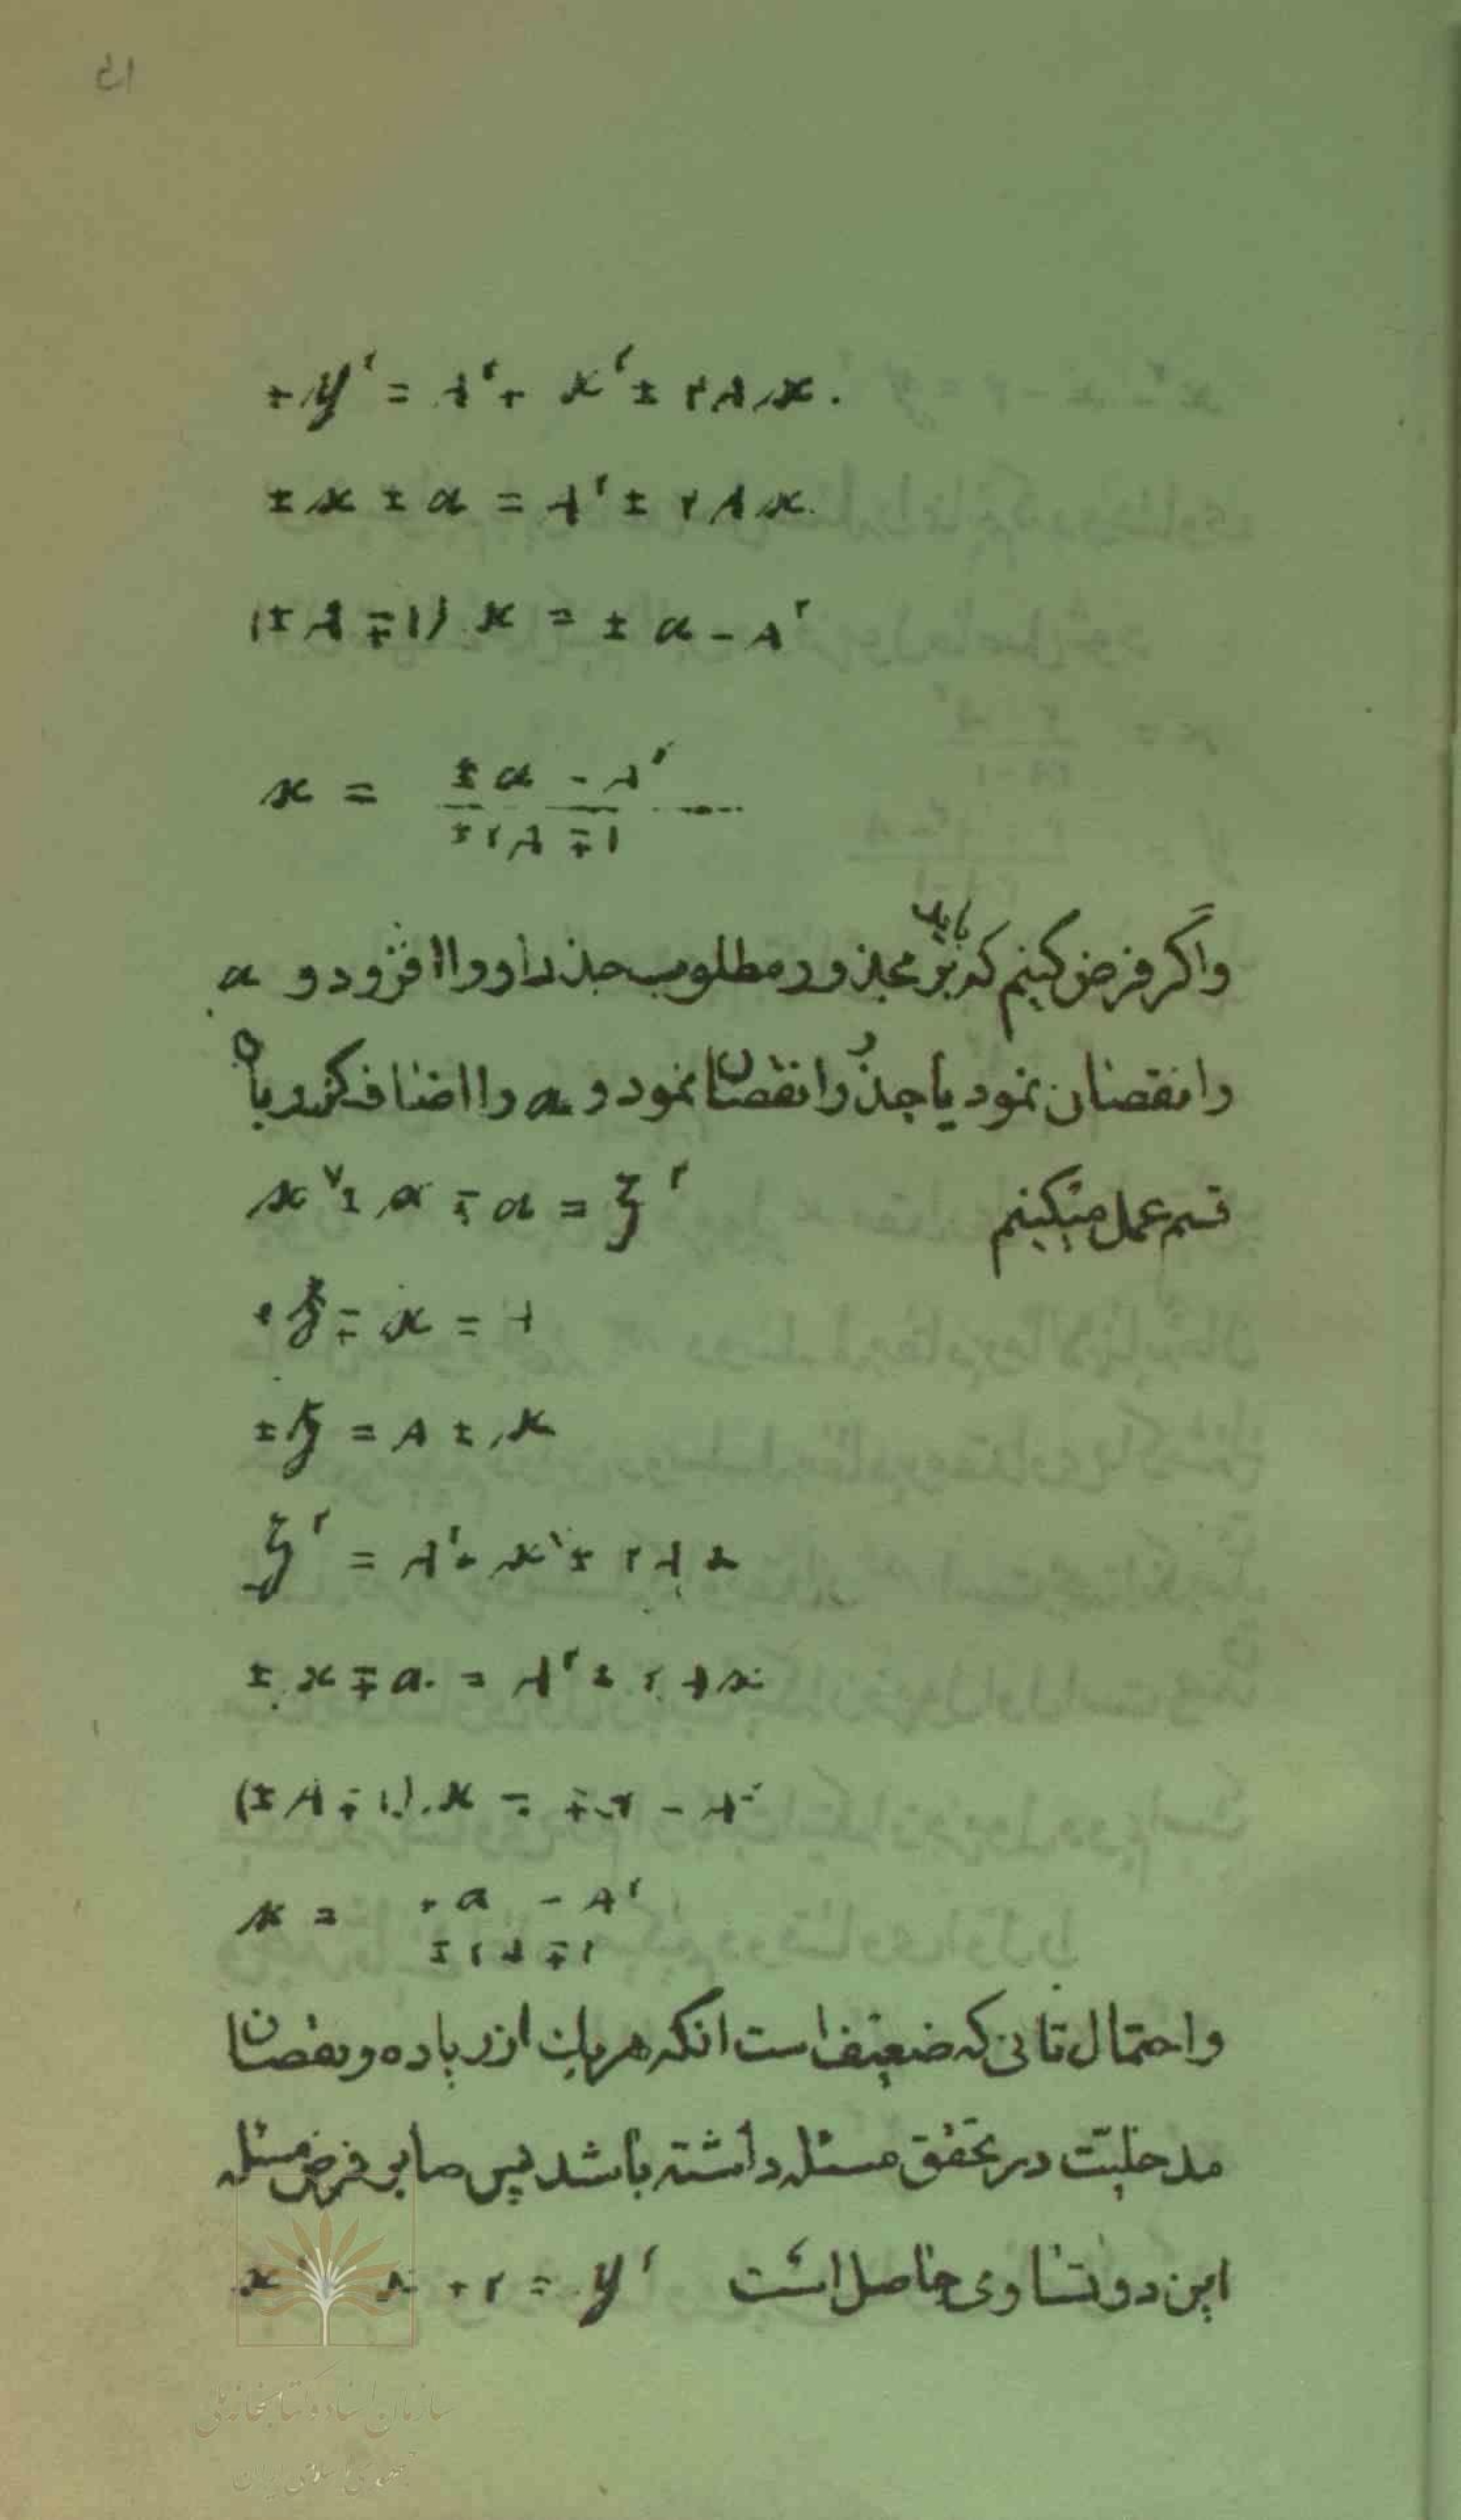 +y² = A² + x² ± ٢Ax.
± x ± a = A² ± ٢Ax.
(± A ∓ ١) x = ± a − A²
x = (± a − A²) / (± ٢A ∓ ١)
واگر فرض کنیم که باید بر مجذور مطلوب جذر او را افزود و a
را نقصان نمود یا جذر را نقصان نمود و a را اضافه کرد با
قسم عمل میکنیم x² ± x ∓ a = ξ²
ξ ∓ x = A
± ξ = A ± x
ξ² = A² + x² ± ٢Ax
± x ∓ a = A² ± ٢Ax
(± A ∓ ١) x = ∓ − A²
x = a − A² / ± ٢A ∓ ١
و احتمال ثانی که ضعیف است انکه هریک از زیاده و نقصان
مدخلیّت در تحقق مسئله داشته باشد پس بر فرض مسئله
این دو تساوی حاصل است x² x + ٢ = y²
سازمان اسناد و کتابخانه ملی
جمهوری اسلامی ایران